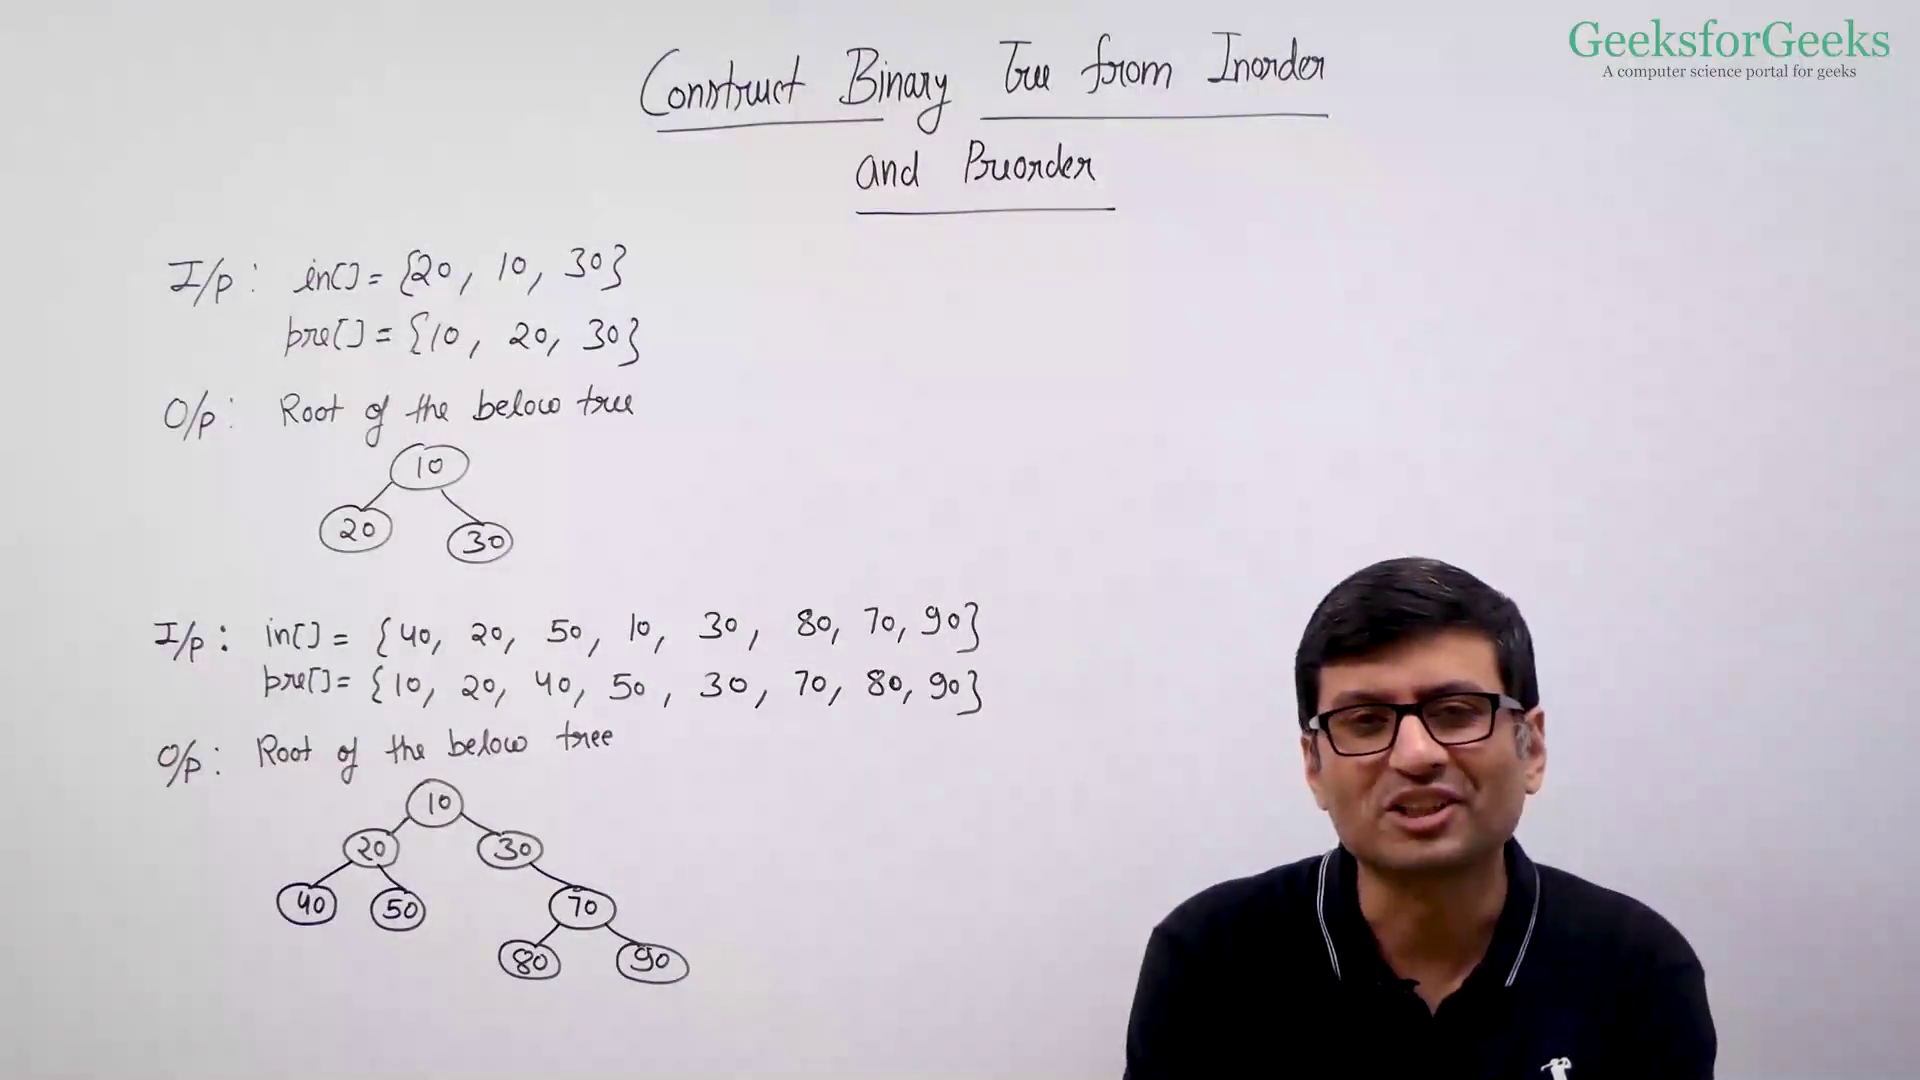 GeeksforGeeks
A computer science portal for geeks
Construct Binary Tree from Inorder
and Preorder
I/p: in[] = {20, 10, 30}
pre[] = {10, 20, 30}
O/p: Root of the below tree
10
20 30
I/p: in[] = {40, 20, 50, 10, 30, 80, 70, 90}
pre[] = {10, 20, 40, 50, 30, 70, 80, 90}
O/p: Root of the below tree
10
20 30
40 50 70
80 90